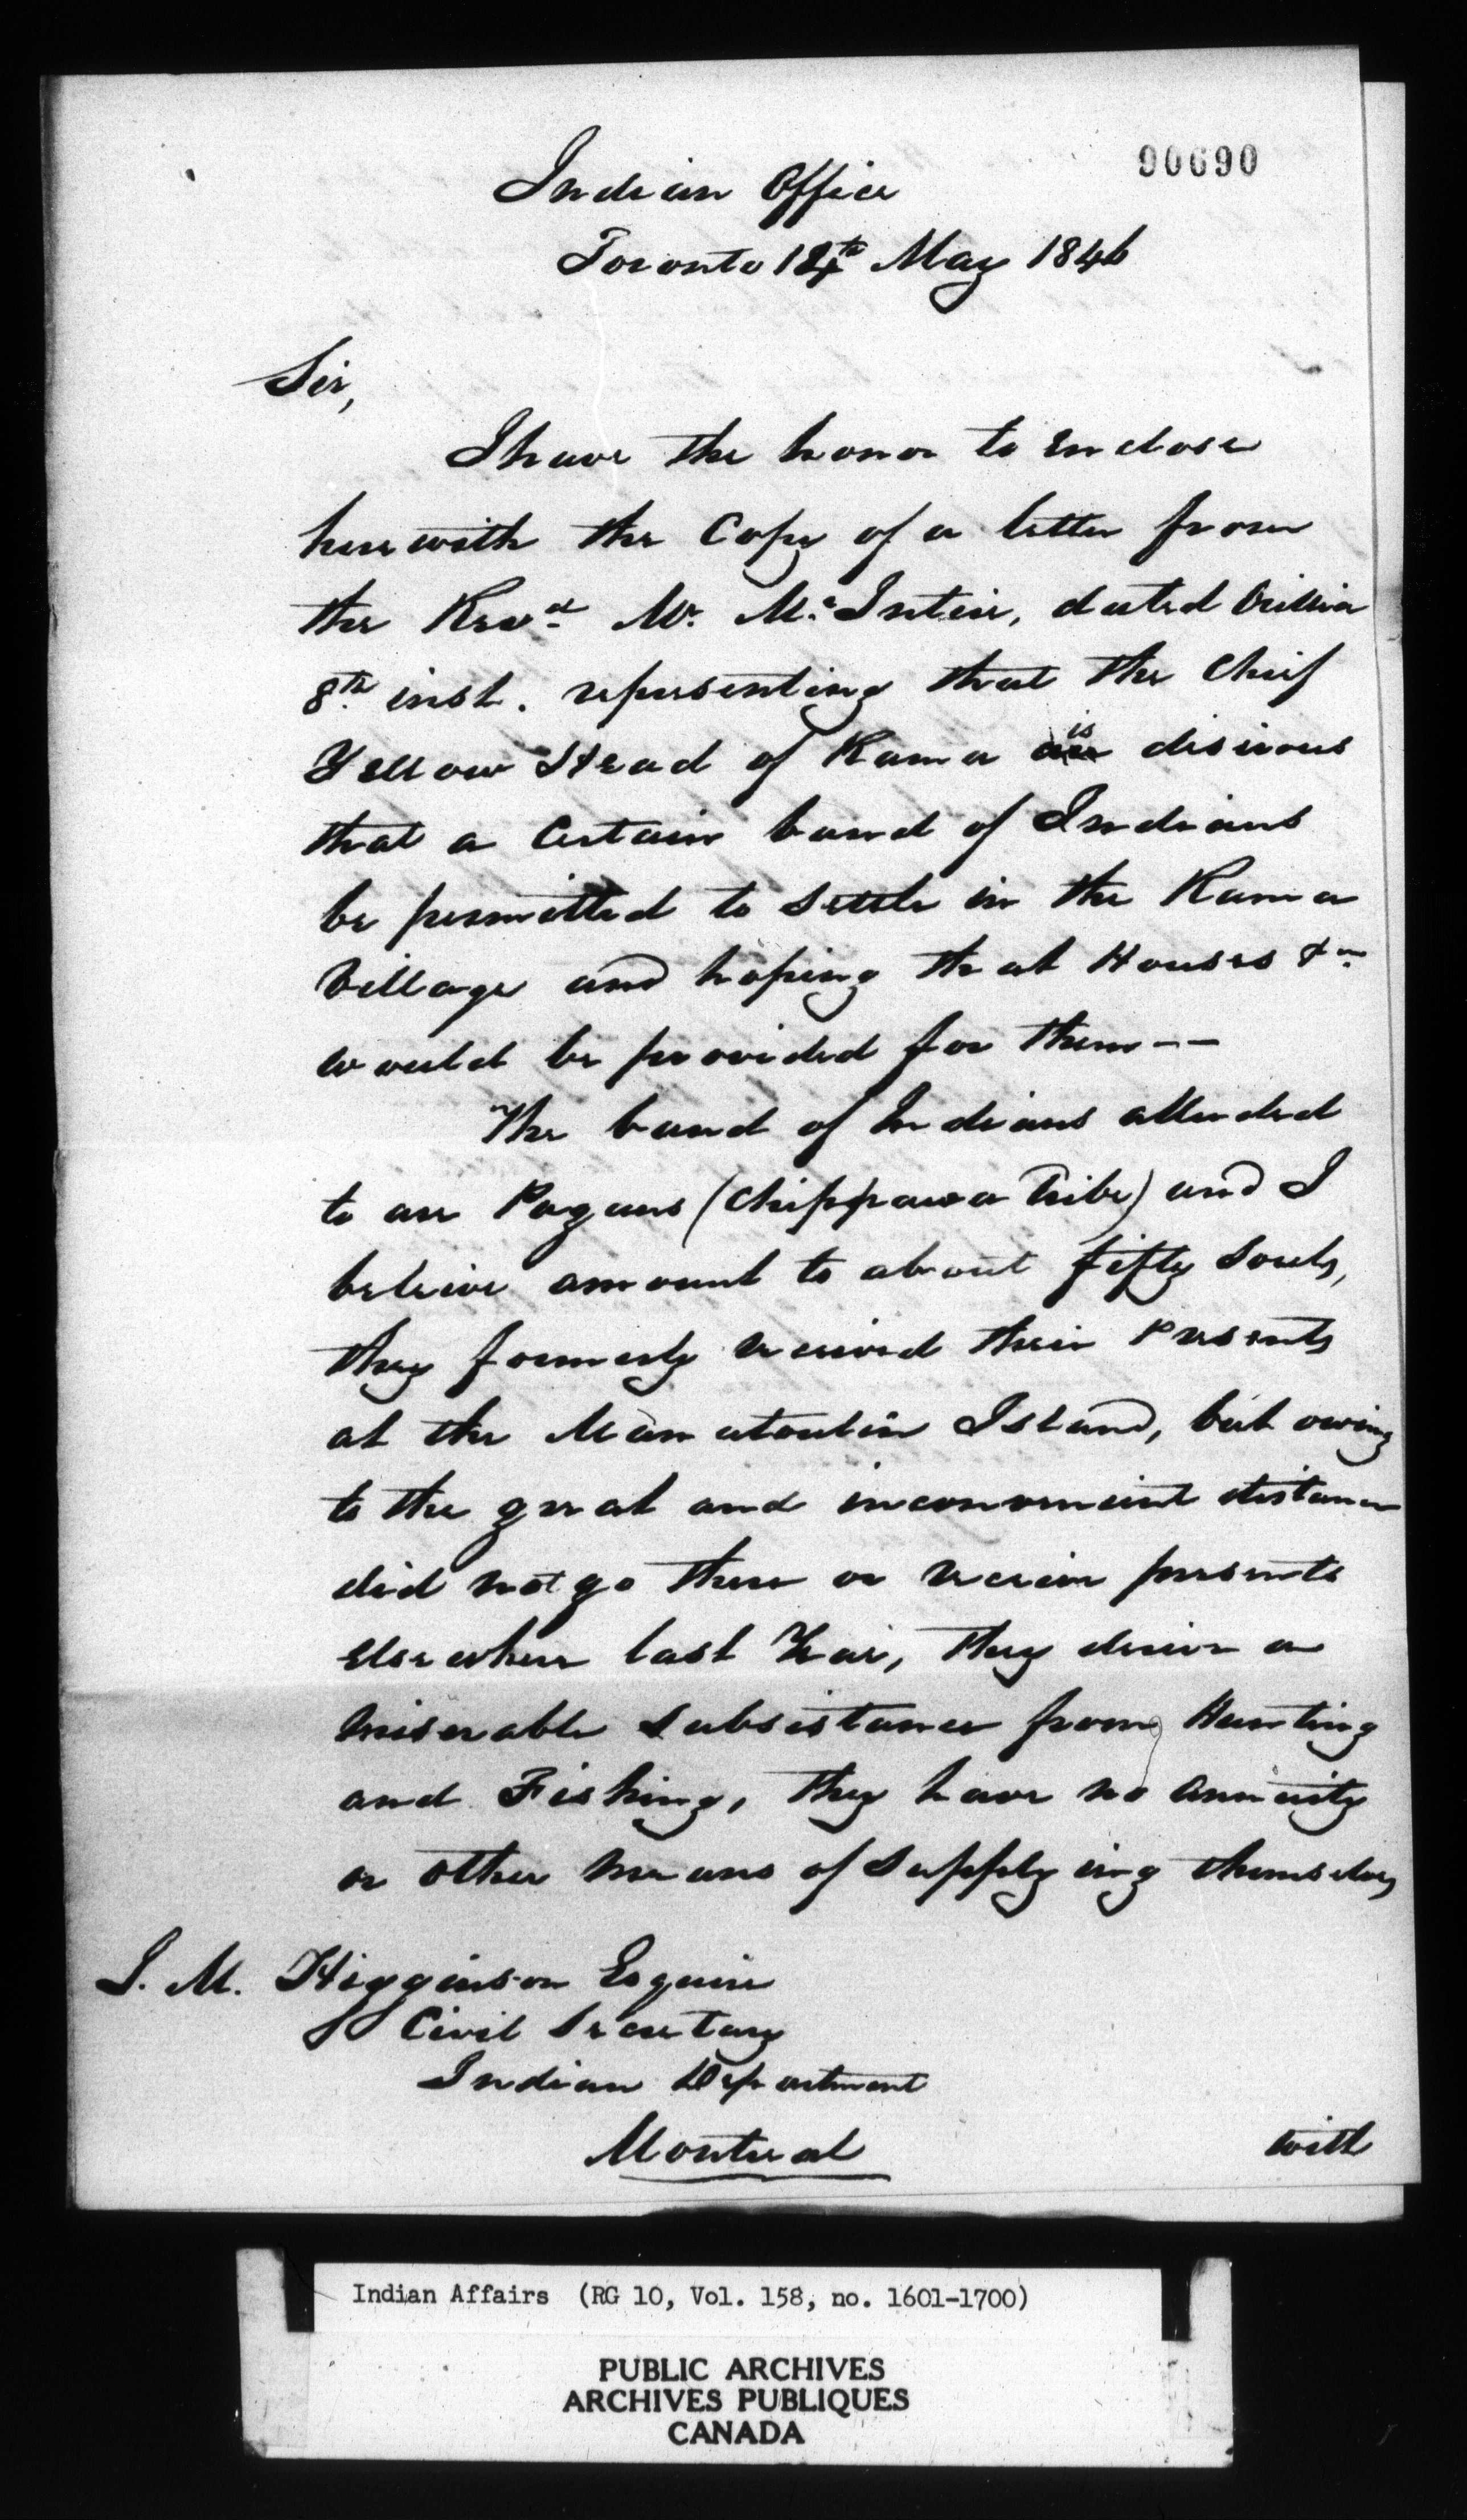 90690
Indian Office
Toronto 14th May 1846
Sir,
I have the honor to enclose
herewith the Copy of a letter from
the Revd. Mr. McIntire, dated Orillia
8th inst. representing that the Chief
Yellow Head of Rama is desirous
that a Certain band of Indians
be permitted to settle in the Rama
Village and hoping that Houses &c.
would be provided for them--
The band of Indians alluded
to are Pagans (Chippawa Tribe) and I
beleive amount to about fifty Souls,
they formerly received their Presents
at the Manatoulin Island, but owing
to the great and inconvenient distance
did not go there or receive presents
elsewhere last Year, they derive a
miserable subsistance from Hunting
and Fishing, they have no Annuity
or other means of supplying themselves
J. M. Higginson Esquire
Civil Secretary
Indian Department
Montreal
with
Indian Affairs (RG 10, Vol. 158, no. 1601-1700)
PUBLIC ARCHIVES
ARCHIVES PUBLIQUES
CANADA